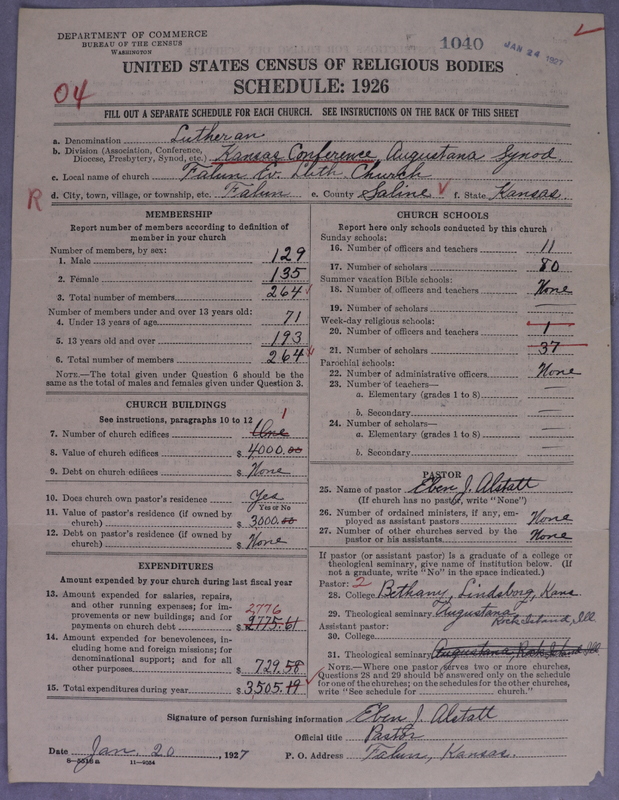 DEPARTMENT OF COMMERCE
BUREAU OF THE CENSUS
WASHINGTON
1040
JAN 24 1927
UNITED STATES CENSUS OF RELIGIOUS BODIES
SCHEDULE: 1926
04
FILL OUT A SEPARATE SCHEDULE FOR EACH CHURCH. SEE INSTRUCTIONS ON THE BACK OF THIS SHEET
a. Denomination Lutheran
b. Division (Association, Conference, Diocese, Presbytery, Synod, etc.) Kansas Conference, Augustana Synod
c. Local name of church Falun Ev. Luth. Church
R d. City, town, village, or township, etc. Falun e. County Saline f. State Kansas
MEMBERSHIP
Report number of members according to definition of
member in your church
Number of members, by sex:
1. Male 129
2. Female 135
3. Total number of members 264
Number of members under and over 13 years old:
4. Under 13 years of age 71
5. 13 years old and over 193
6. Total number of members 264
NOTE.—The total given under Question 6 should be
same as the total of males and females given under Question 3.
CHURCH BUILDINGS
See instructions, paragraphs 10 to 12
1
7. Number of church edifices One
8. Value of church edifices $ 4000.00
9. Debt on church edifices $ None
10. Does church own pastor's residence Yes
Yes or No
11. Value of pastor's residence (if owned by
church) $ 3000.00
12. Debt on pastor's residence (if owned by
church) $ None
EXPENDITURES
Amount expended by your church during last fiscal year
13. Amount expended for salaries, repairs,
and other running expenses; for im-
provements or new buildings; and for 2776
payments on church debt $ 2775.61
14. Amount expended for benevolences, in-
cluding home and foreign missions; for
denominational support; and for all
other purposes $ 729.58
15. Total expenditures during year $ 3,505.19
CHURCH SCHOOLS
Report here only schools conducted by this church
Sunday schools:
16. Number of officers and teachers 11
17. Number of scholars 80
Summer vacation Bible schools:
18. Number of officers and teachers None
19. Number of scholars —
Week-day religious schools:
20. Number of officers and teachers 1
21. Number of scholars 37
Parochial schools:
22. Number of administrative officers None
23. Number of teachers—
a. Elementary (grades 1 to 8) —
b. Secondary —
24. Number of scholars—
a. Elementary (grades 1 to 8) —
b. Secondary —
PASTOR
25. Name of pastor Eben J. Alstatt
(If church has no pastor, write "None")
26. Number of ordained ministers, if any, em-
ployed as assistant pastors None
27. Number of other churches served by the
pastor or his assistants None
If pastor (or assistant pastor) is a graduate of a college or
theological seminary, give name of institution below. (If
not a graduate, write "No" in the space indicated.)
Pastor: 2
28. College Bethany, Lindsborg, Kans
29. Theological seminary Augustana
Rock Island, Ill
Assistant pastor:
30. College
31. Theological seminary Augustana, Rock Island Ill
NOTE.—Where one pastor serves two or more churches,
Questions 28 and 29 should be answered only on the schedule
for one of the churches; on the schedules for the other churches,
write "See schedule for church."
Signature of person furnishing information Eben J. Alstatt
Official title Pastor
Date Jan. 20, 1927 P. O. Address Falun, Kansas.
8—5518a 11—9054